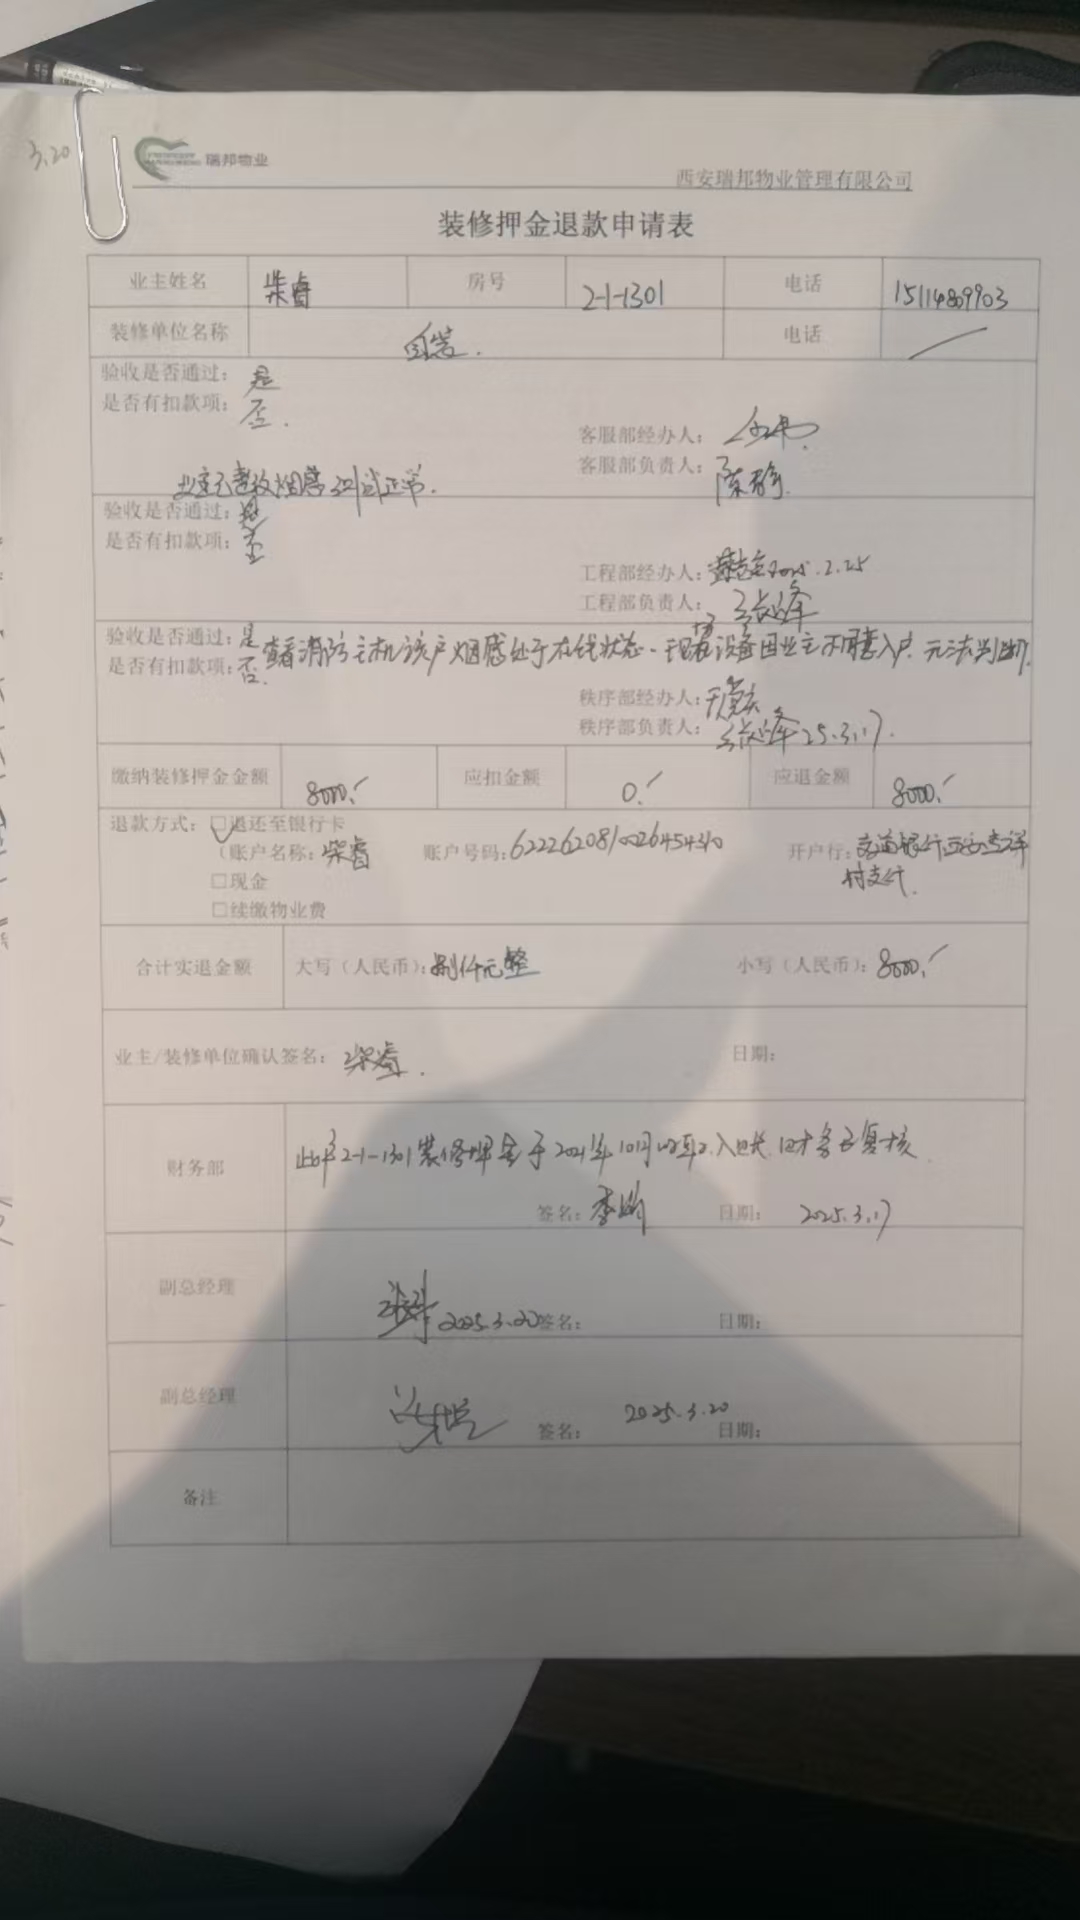 3.20
瑞邦物业
西安瑞邦物业管理有限公司
装修押金退款申请表
业主姓名 柴睿 房号 2-1-1301 电话 15114809903
装修单位名称 自装. 电话
验收是否通过: 是
是否有扣款项: 否.
客服部经办人:
客服部负责人: 陈静
烟感测试正常.
验收是否通过: 是
是否有扣款项: 否
工程部经办人: 2025.2.25
工程部负责人:
验收是否通过: 是
是否有扣款项: 否. 查看消防主机该户烟感处于在线状态. 现场设备因业主不同意入户 无法判断.
秩序部经办人:
秩序部负责人: 25.3.17.
缴纳装修押金金额 8000.- 应扣金额 0.- 应退金额 8000.-
退款方式: □退还至银行卡
(账户名称: 柴睿 账户号码: 6222620810026454310 开户行: 交通银行西安
村支行.
□现金
□续缴物业费
合计实退金额 大写(人民币): 捌仟元整 小写(人民币): 8000.-
业主/装修单位确认签名: 柴睿. 日期:
财务部 此户2-1-1301装修押金于2021年10月 入账, 财务已复核
签名: 日期: 2025.3.17
副总经理 2025.3.20 签名: 日期:
副总经理 签名: 2025.3.20 日期:
备注